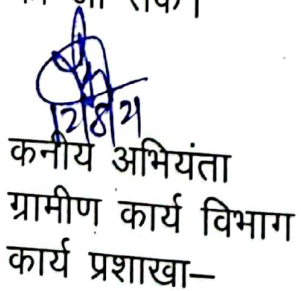 12/8/21
कनीय अभियंता
ग्रामीण कार्य विभाग
कार्य प्रशाखा–